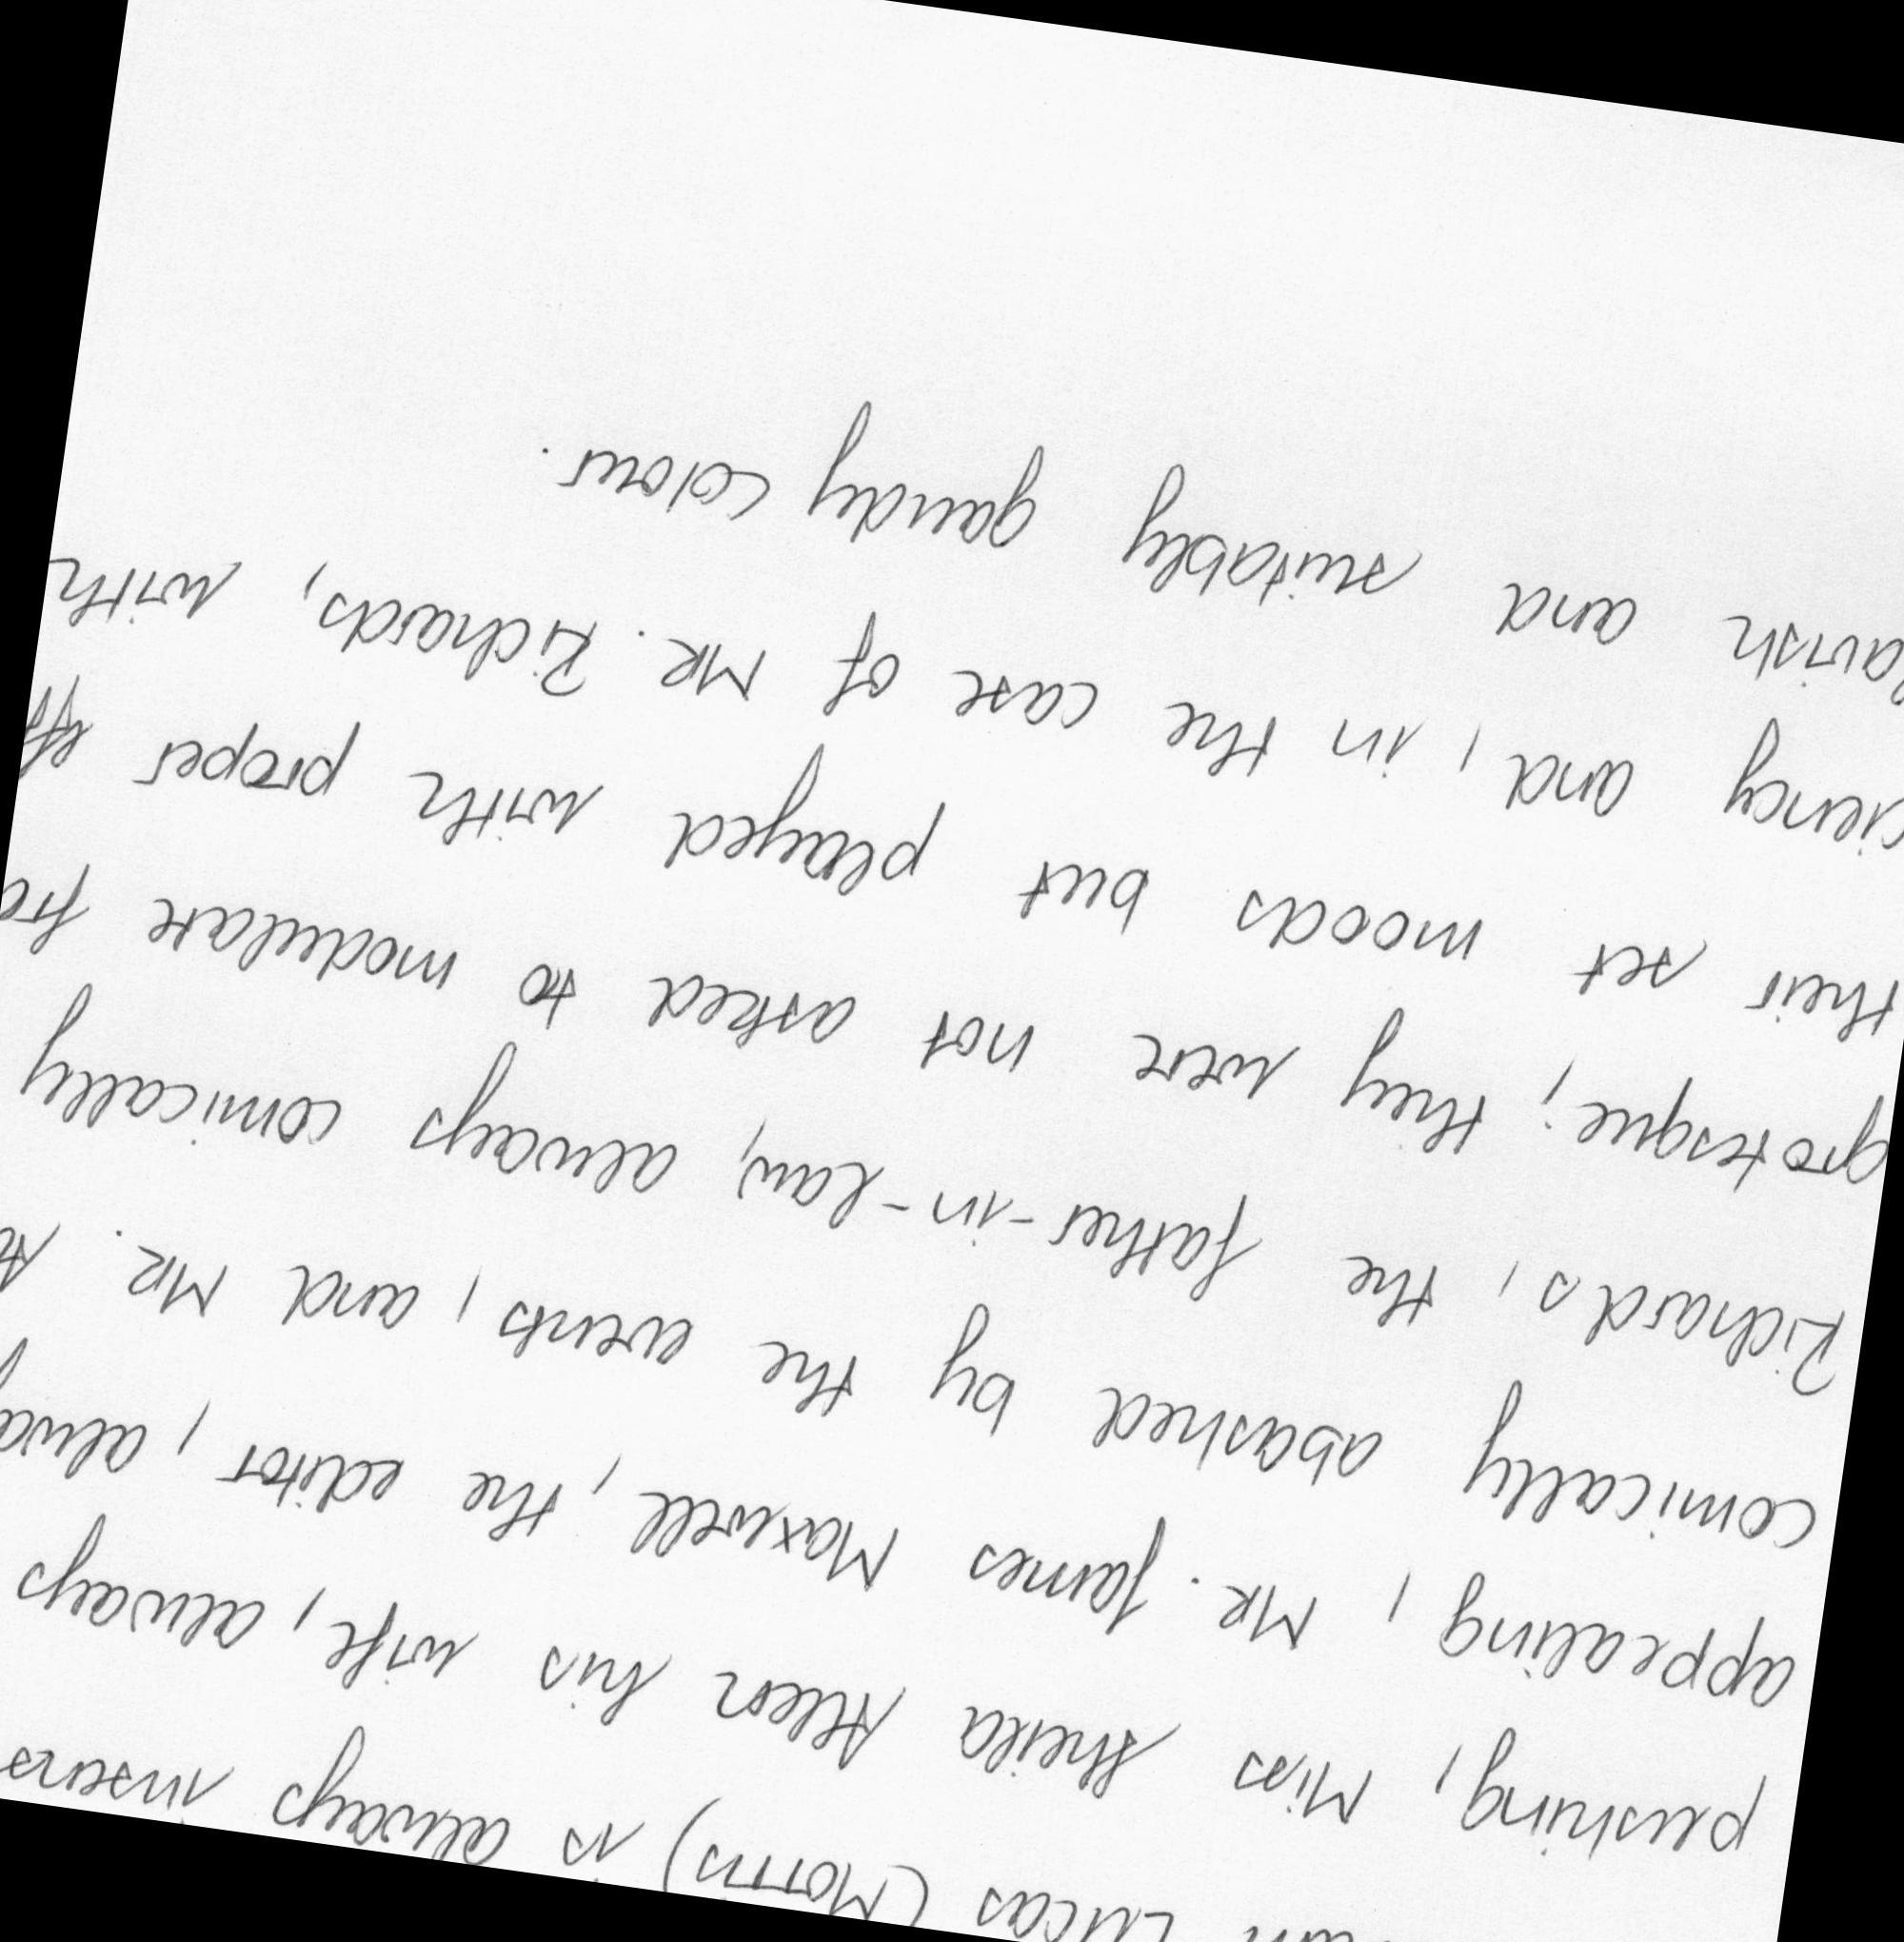 Lucas (Morris) is always
pushing, Miss Sheila Allen his wife, always
appealing, MR. James Maxwell, the editor,
comically abashed by the events, and MR.
Richards, the father-in-law, always comically
grotesque; they were not asked to modulate
their set moods but played with proper
and, in the case of MR. Richards, with
and suitably gaudy colour.